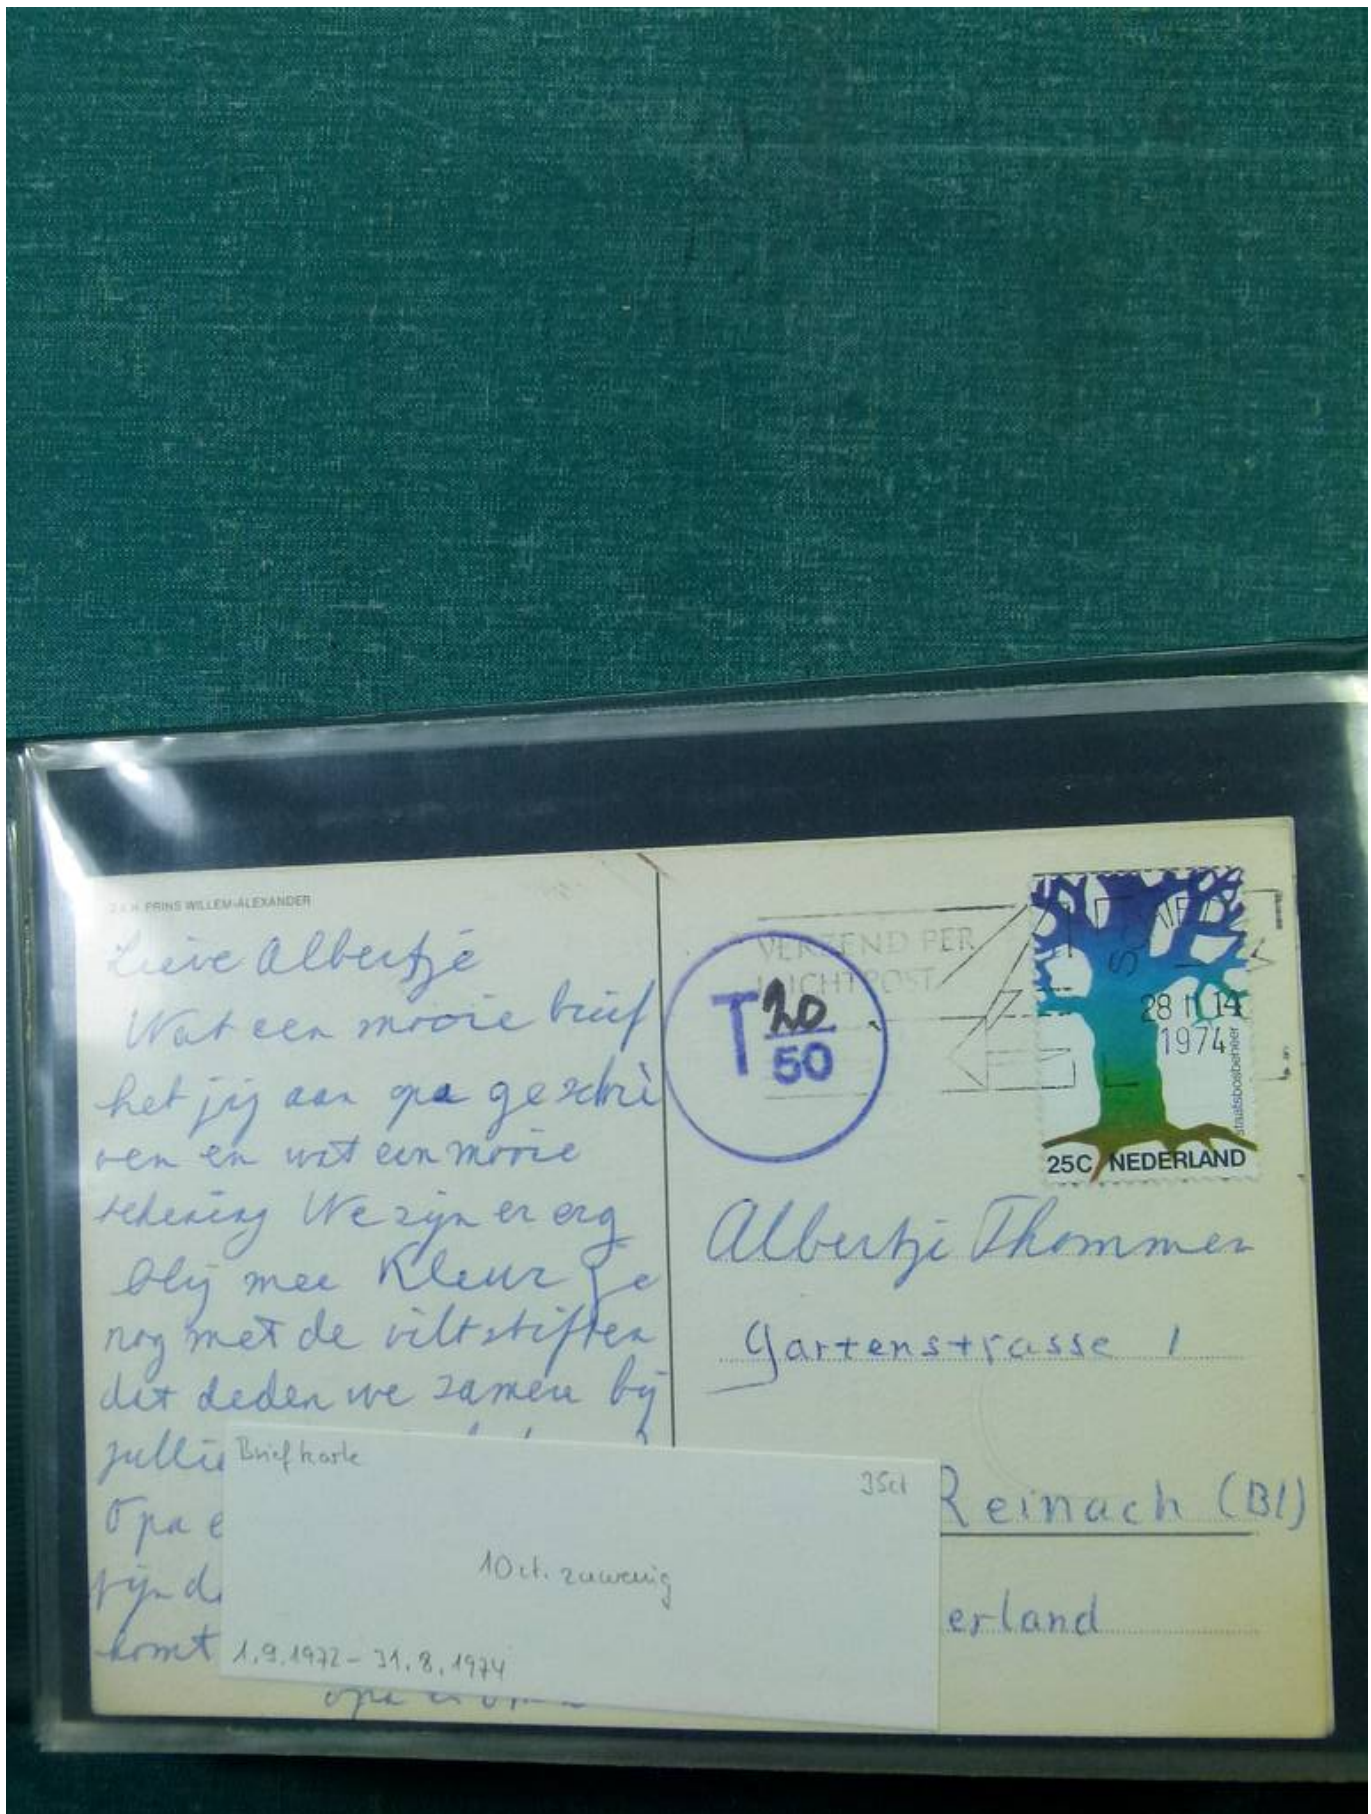 Z.K.H. PRINS WILLEM-ALEXANDER
Lieve Albertje
Wat een mooie brief
het jij aan opa geschre
ven en wat een mooie
tekening We zijn er erg
blij mee Kleur je
nog met de viltstiften
dat deden we zamen bij
jullie
Opa e
zijn d
komt
opa
VERZEND PER
LUCHTPOST
T 20
50
28 II 14
1974
staatsbosbeheer
25C NEDERLAND
Albertje Thommen
Gartenstrasse 1
Reinach (Bl)
erland
Briefkarte
35ct
10ct. zuwenig
1.9.1972 - 31.8.1974